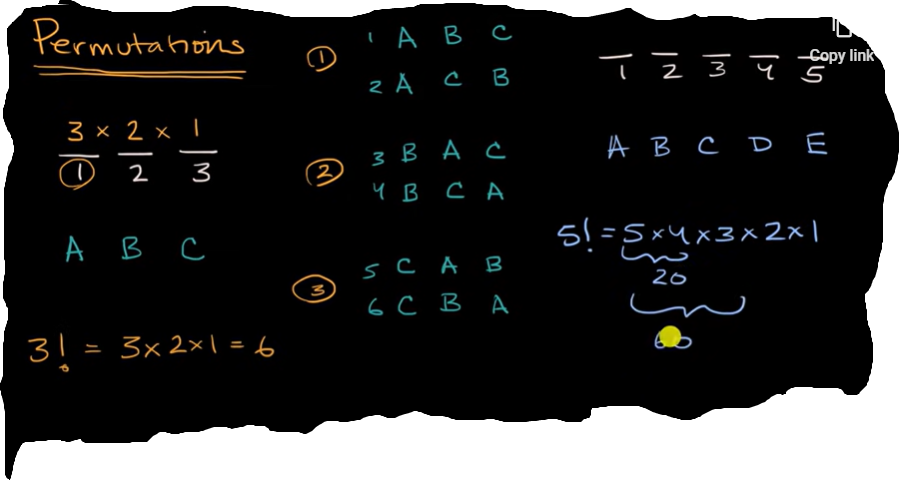 Permutations
3 × 2 × 1
1 2 3
A B C
3! = 3×2×1 = 6
1
1 A B C
2 A C B
2
3 B A C
4 B C A
3
5 C A B
6 C B A
Copy link
1 2 3 4 5
A B C D E
5! = 5×4×3×2×1
20
60